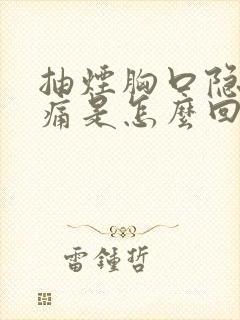 抽煙胸口隐
痛是怎麼回
雷鍾哲